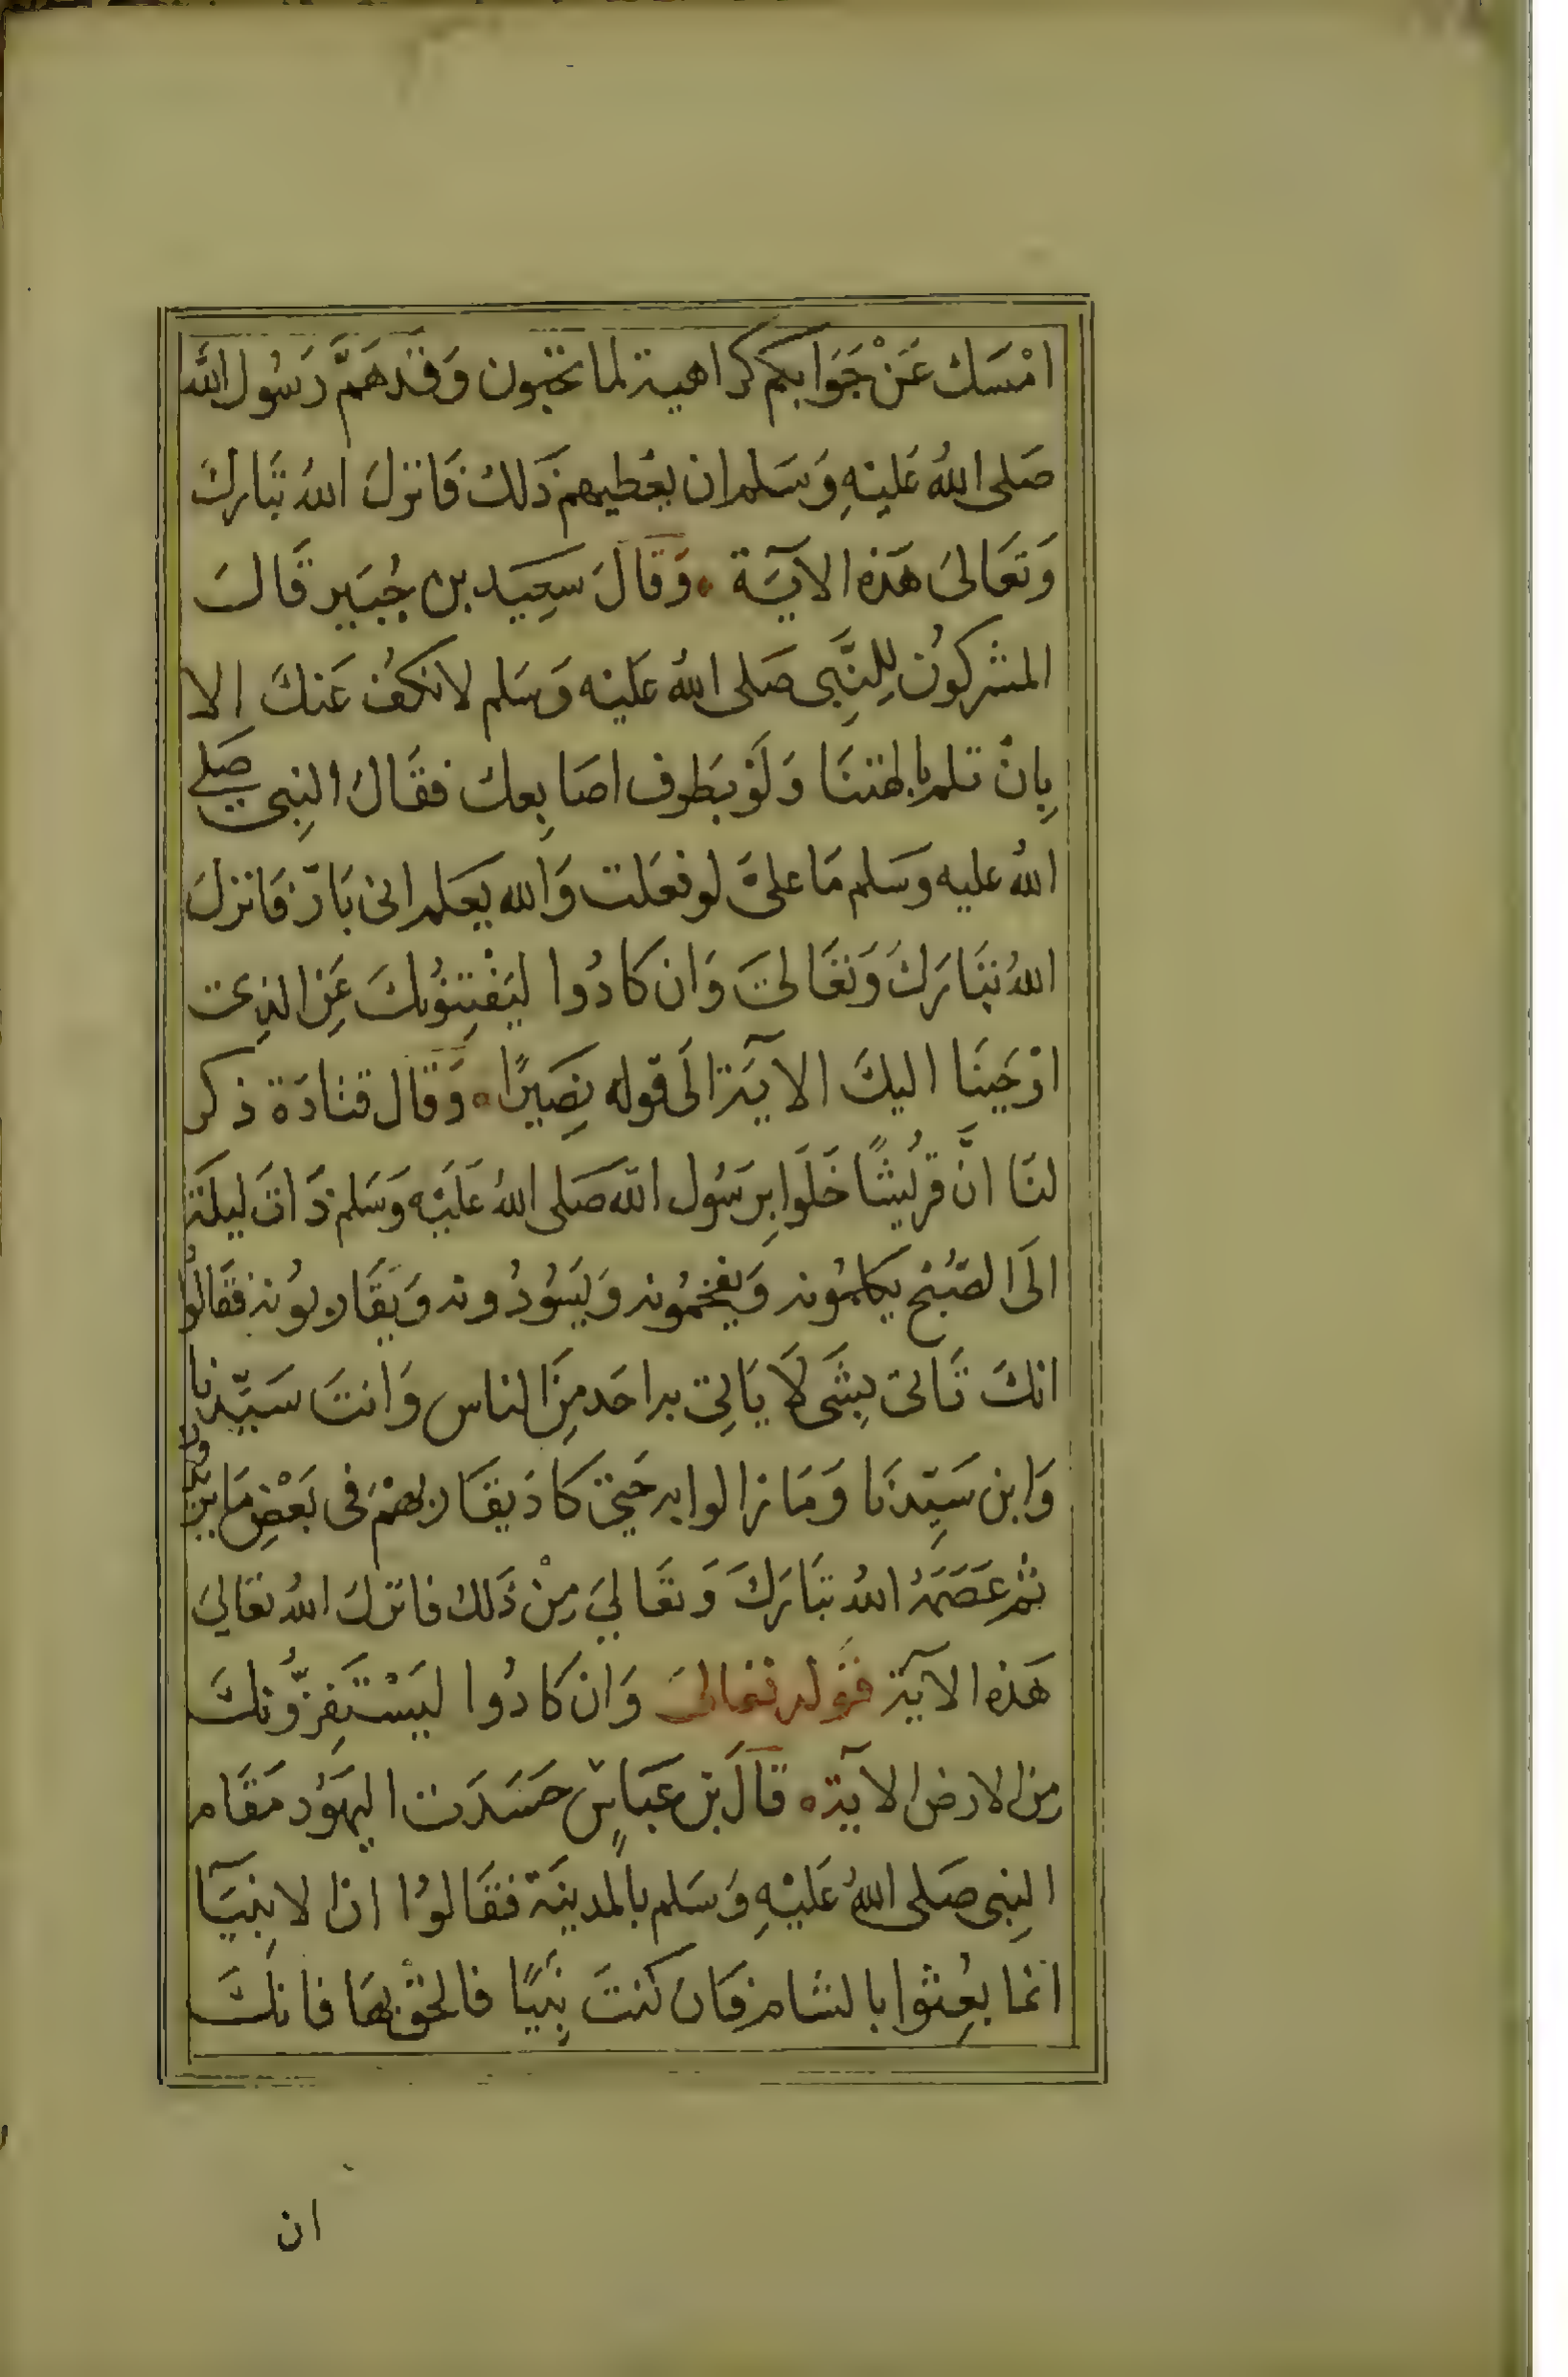 امْسَك عَنْ جَوَابكم كراهية لما تجيون وَقد هَمَّ رَسُول الله
صَلى اللهُ عَليْهِ وَسَلم ان يعْطيهم ذَلك فَانزلَ اللهُ تَبَارك
وَتَعَالىَ هَذه الآيَة وَقَالَ سَعِيَد بن جُبَير قَالتَ
المشركوُن لِلنَّبِى صَلى اللهُ عَليْه وَسَلم لا نكفُ عَنكَ الا
بِانْ تلم بالهتنَا وَلَوْ بَطرف اصَابِعك فقَالَ النِبى صَلى
اللهُ عليه وسَلم مَا علىَّ لو فعَلت وَالله يعَلم انى بَارّ فَانزلَ
اللهُ تبَارَكَ وَتعَالىَ وَان كادُوا ليَفْتِنوُنكَ عَنِ الذِى
اوْحَينَا اليكَ الآيَة الَى قوله نصِيَرًا وَقال قتادَة ذكر
لنَا انَّ قرُيشًا خَلَوا بِرَسُول الله صَلى اللهُ عَليْه وَسَلم ذَاتَ ليلَة
الَى الصّبُح يكلمُونه وَيفخمُونه وَيسَوُدُونه وَيقَاربوُنه فقَالوُا
انكَ تَاتى بِشَى لَا يَاتِى به احَد مِنَ الناس وَانتَ سَيّدنا
وَابن سَيِّدنَا وَمَا زالوا به حَتى كادَ يقَاربهمْ فى بَعْضِ مَا يريدون
ثم عَصَمَهُ اللهُ تبَارَكَ وَتعَالىَ مِنْ ذَلك فانزلَ اللهُ تعَالىَ
هَذه الآيَة قوله تعالىَ وَان كادُوا ليَسْتَفِزُّونكَ
مِن الارض الآيَة قالَ بن عَبَاسٍ حَسَدَت اليهَوُد مَقَام
النِبى صَلى اللهُ عَليْهِ وَسَلم بالمدينَة فقَالوُا ان الانبيَآ
انما بعُثِوا بالشام فَان كنتَ نِبَيًا فالحقْ بهَا فانكَ
ان